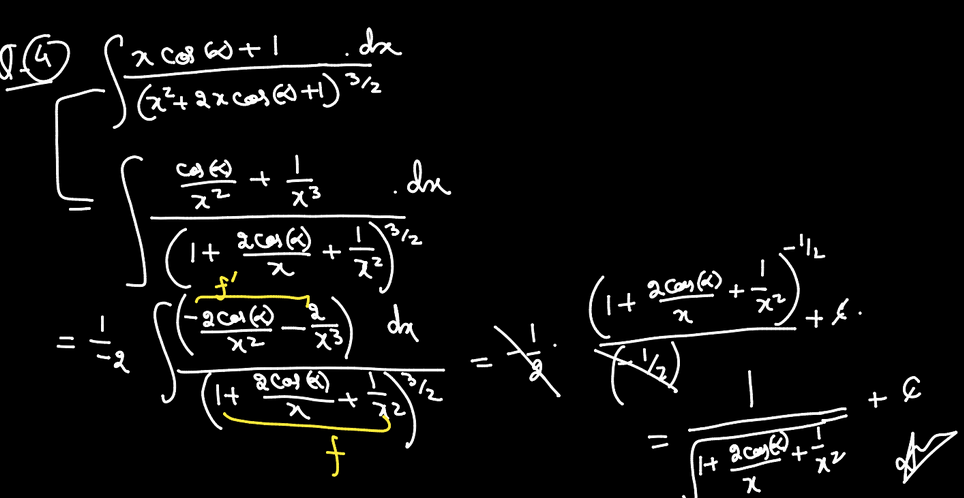 Q.4 ∫ (x cos(α) + 1)/(x² + 2x cos(α) + 1)^(3/2) . dx
= ∫ (cos(α)/x² + 1/x³)/(1 + 2cos(α)/x + 1/x²)^(3/2) . dx
f'
= 1/-2 ∫ (-2cos(α)/x² - 2/x³)/(1 + 2cos(α)/x + 1/x²)^(3/2) dx
f
= -1/2 . (1 + 2cos(α)/x + 1/x²)^(-1/2)/(-1/2) + c.
= 1/√(1 + 2cos(α)/x + 1/x²) + c